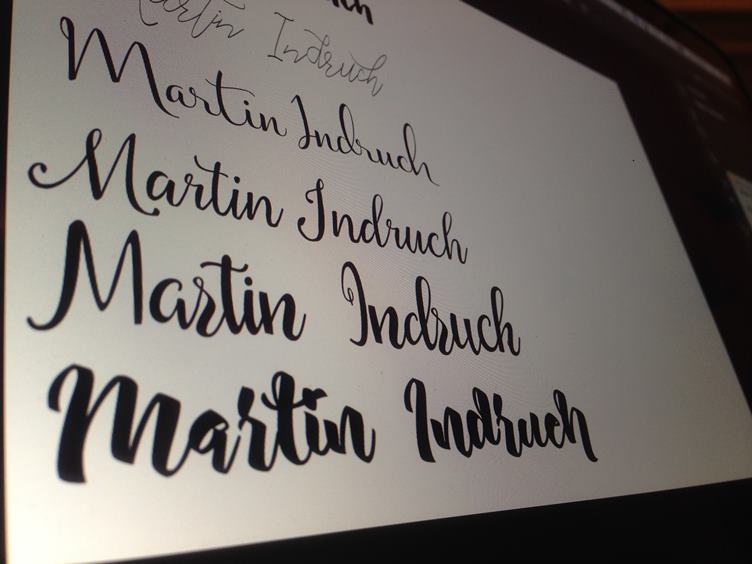 Martin Indruch
Martin Indruch
Martin Indruch
Martin Indruch
Martin Indruch